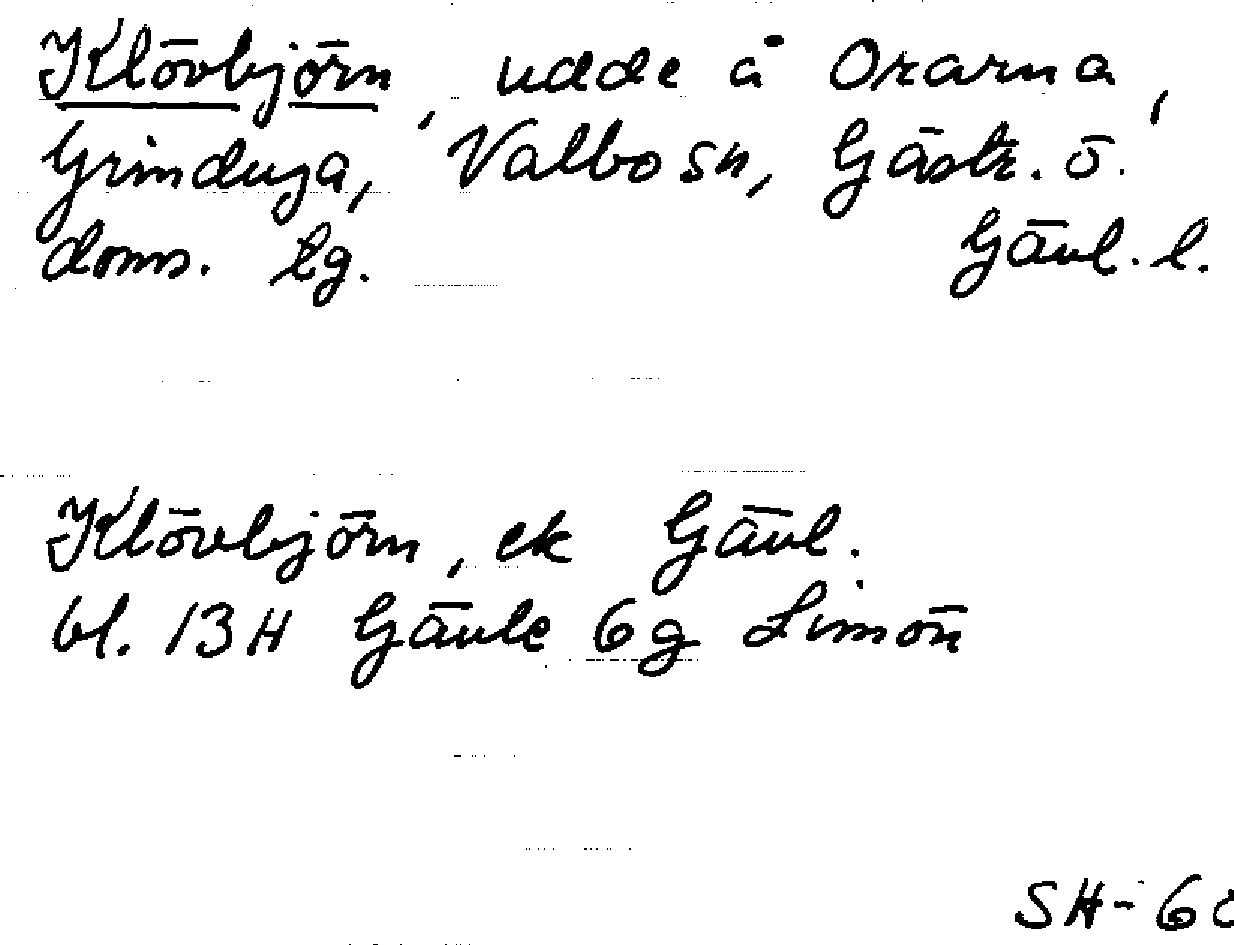 Klövbjörn, udde å Orarna,
Grinduga, Valbo sn, Gästr. ö.
doms. tg. Gävl. l.
Klövbjörn, ek Gävl.
bl. 13H Gävle 6g Limön
SH-60